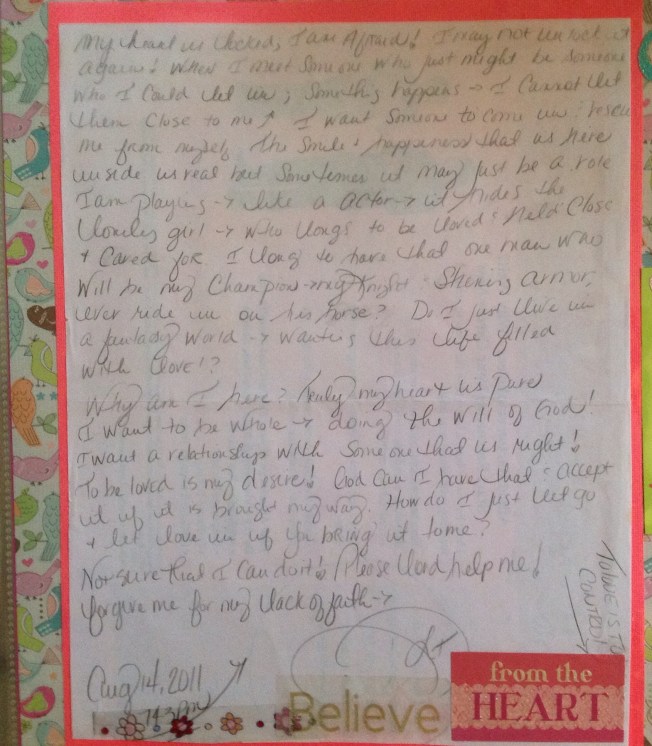 My heart is locked, I am Afraid! I may not unlock it
again! When I meet Someone who just might be someone
who I Could let in; Something happens → I Cannot let
them Close to me! I want Someone to come in & rescue
me from myself. The Smile & happiness that is here
inside is real but Sometimes it may just be a role
I am playing → like a actor → it hides the
lonely girl → who longs to be loved & Held Close
+ Cared for. I long to have that one man who
Will be my Champion → my Knight & Shining armor,
ever ride in on his horse? Do I just live in
a fantasy world → wanting this life filled
with love!?
Why am I here? Truly my heart is Pure
I want to be whole → doing the will of God!
I want a relationship with Someone that is right!
To be loved is my desire! God Can I have that & accept
it if it is brought my way. How do I just let go
+ let love in if you bring it to me?
Not sure that I can do it! Please Lord help me!
forgive me for my lack of faith →
Aug 14, 2011
7:43pm
Believe
from the
HEART